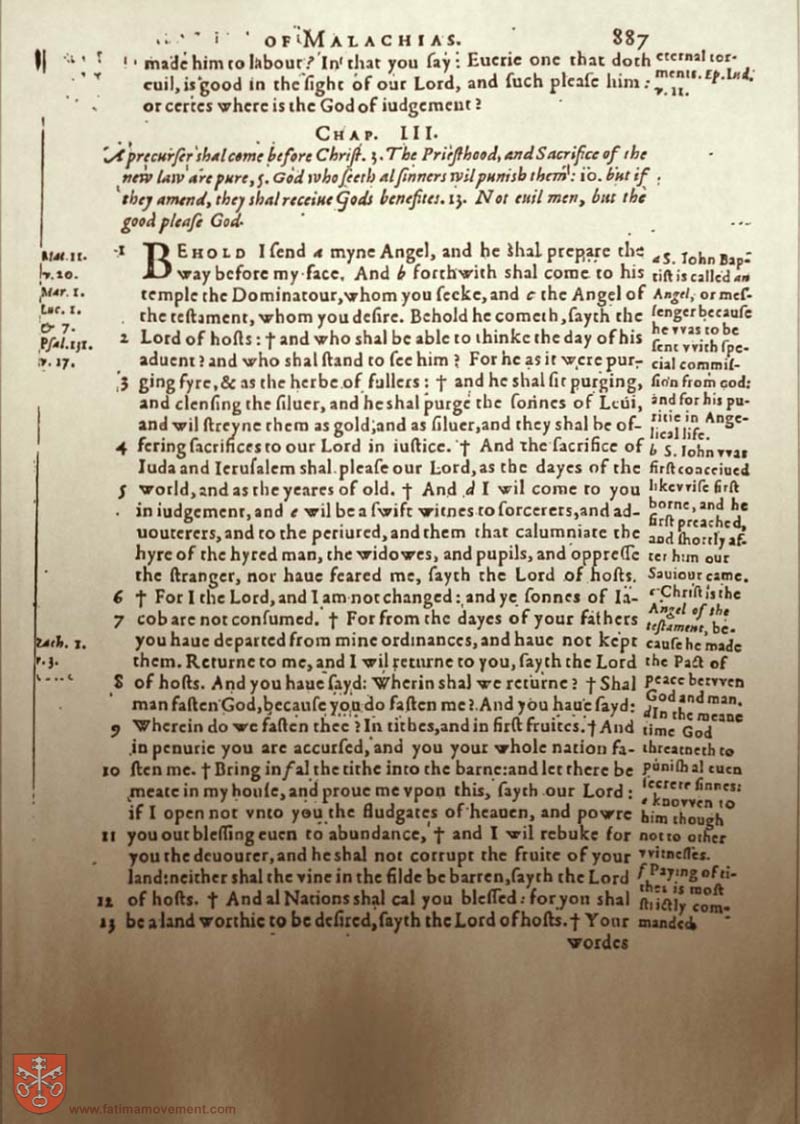 OF MALACHIAS. 887
made him to labour? In that you ſay: Euerie one that doth
euil, is good in the ſight of our Lord, and ſuch pleaſe him:
or certes where is the God of iudgement?
eternal tor-
ments. Ep. Iud.
v. 11.
CHAP. III.
A precurſer shal come before Chriſt. 3. The Prieſthood, and Sacrifice of the
new law are pure, 5. God who ſeeth al ſinners wil punish them: 10. but if
they amend, they shal receiue Gods benefites. 13. Not euil men, but the
good pleaſe God.
Mat. 11.
v. 10.
Mar. 1.
Luc. 1.
& 7.
Pſal. 131.
v. 17.
1 BEHOLD I ſend a myne Angel, and he ſhal prepare the
way before my face. And b forthwith shal come to his
temple the Dominatour, whom you ſeeke, and c the Angel of
the teſtament, whom you deſire. Behold he cometh, ſayth the
2 Lord of hoſts: † and who shal be able to thinke the day of his
aduent? and who shal ſtand to ſee him? For he as it were pur-
3 ging fyre, & as the herbe of fullers: † and he shal ſit purging,
and clenſing the ſiluer, and he shal purge the ſonnes of Leui,
and wil ſtreyne them as gold, and as ſiluer, and they shal be of-
fering ſacrifices to our Lord in iuſtice. † And the ſacrifice of
4 Iuda and Ieruſalem shal pleaſe our Lord, as the dayes of the
5 world, and as the yeares of old. † And d I wil come to you
in iudgement, and e wil be a ſwift witnes to ſorcerers, and ad-
uouterers, and to the periured, and them that calumniate the
hyre of the hyred man, the widowes, and pupils, and oppreſſe
the ſtranger, nor haue feared me, ſayth the Lord of hoſts.
6 † For I the Lord, and I am not changed: and ye ſonnes of Ia-
7 cob are not conſumed. † For from the dayes of your fathers
you haue departed from mine ordinances, and haue not kept
them. Returne to me, and I wil returne to you, ſayth the Lord
8 of hoſts. And you haue ſayd: Wherin shal we returne? † Shal
man faſten God, becauſe you do faſten me? And you haue ſayd:
9 Wherein do we faſten thee? In tithes, and in firſt fruites. † And
in penurie you are accurſed, and you your whole nation fa-
10 ſten me. † Bring in f al the tithe into the barne: and let there be
meate in my houſe, and proue me vpon this, ſayth our Lord:
if I open not vnto you the fludgates of heauen, and powre
11 you out bleſſing euen to abundance, † and I wil rebuke for
you the deuourer, and he shal not corrupt the fruite of your
land: neither shal the vine in the filde be barren, ſayth the Lord
12 of hoſts. † And al Nations shal cal you bleſſed: for you shal
13 be a land worthie to be deſired, ſayth the Lord of hoſts. † Your
wordes
Zach. 1.
v. 3.
a S. Iohn Bap-
tiſt is called an
Angel, or meſ-
ſenger becauſe
he vvas to be
ſent vvith ſpe-
cial commiſ-
ſion from God:
and for his pu-
ritie in Ange-
lical life.
b S. Iohn vvas
firſt conceiued
likevviſe firſt
borne, and he
firſt preached,
and ſhortly af-
ter him our
Sauiour came.
c Chriſt is the
Angel of the
teſtament, be-
cauſe he made
the Pact of
peace betvven
God and man.
d In the meane
time God
threatneth to
puniſh al euen
ſecrete ſinnes:
e knovven to
him though
not to other
vvitneſſes.
f Paying of ti-
thes is moſt
ſtrictly com-
manded.
www.fatimamovement.com